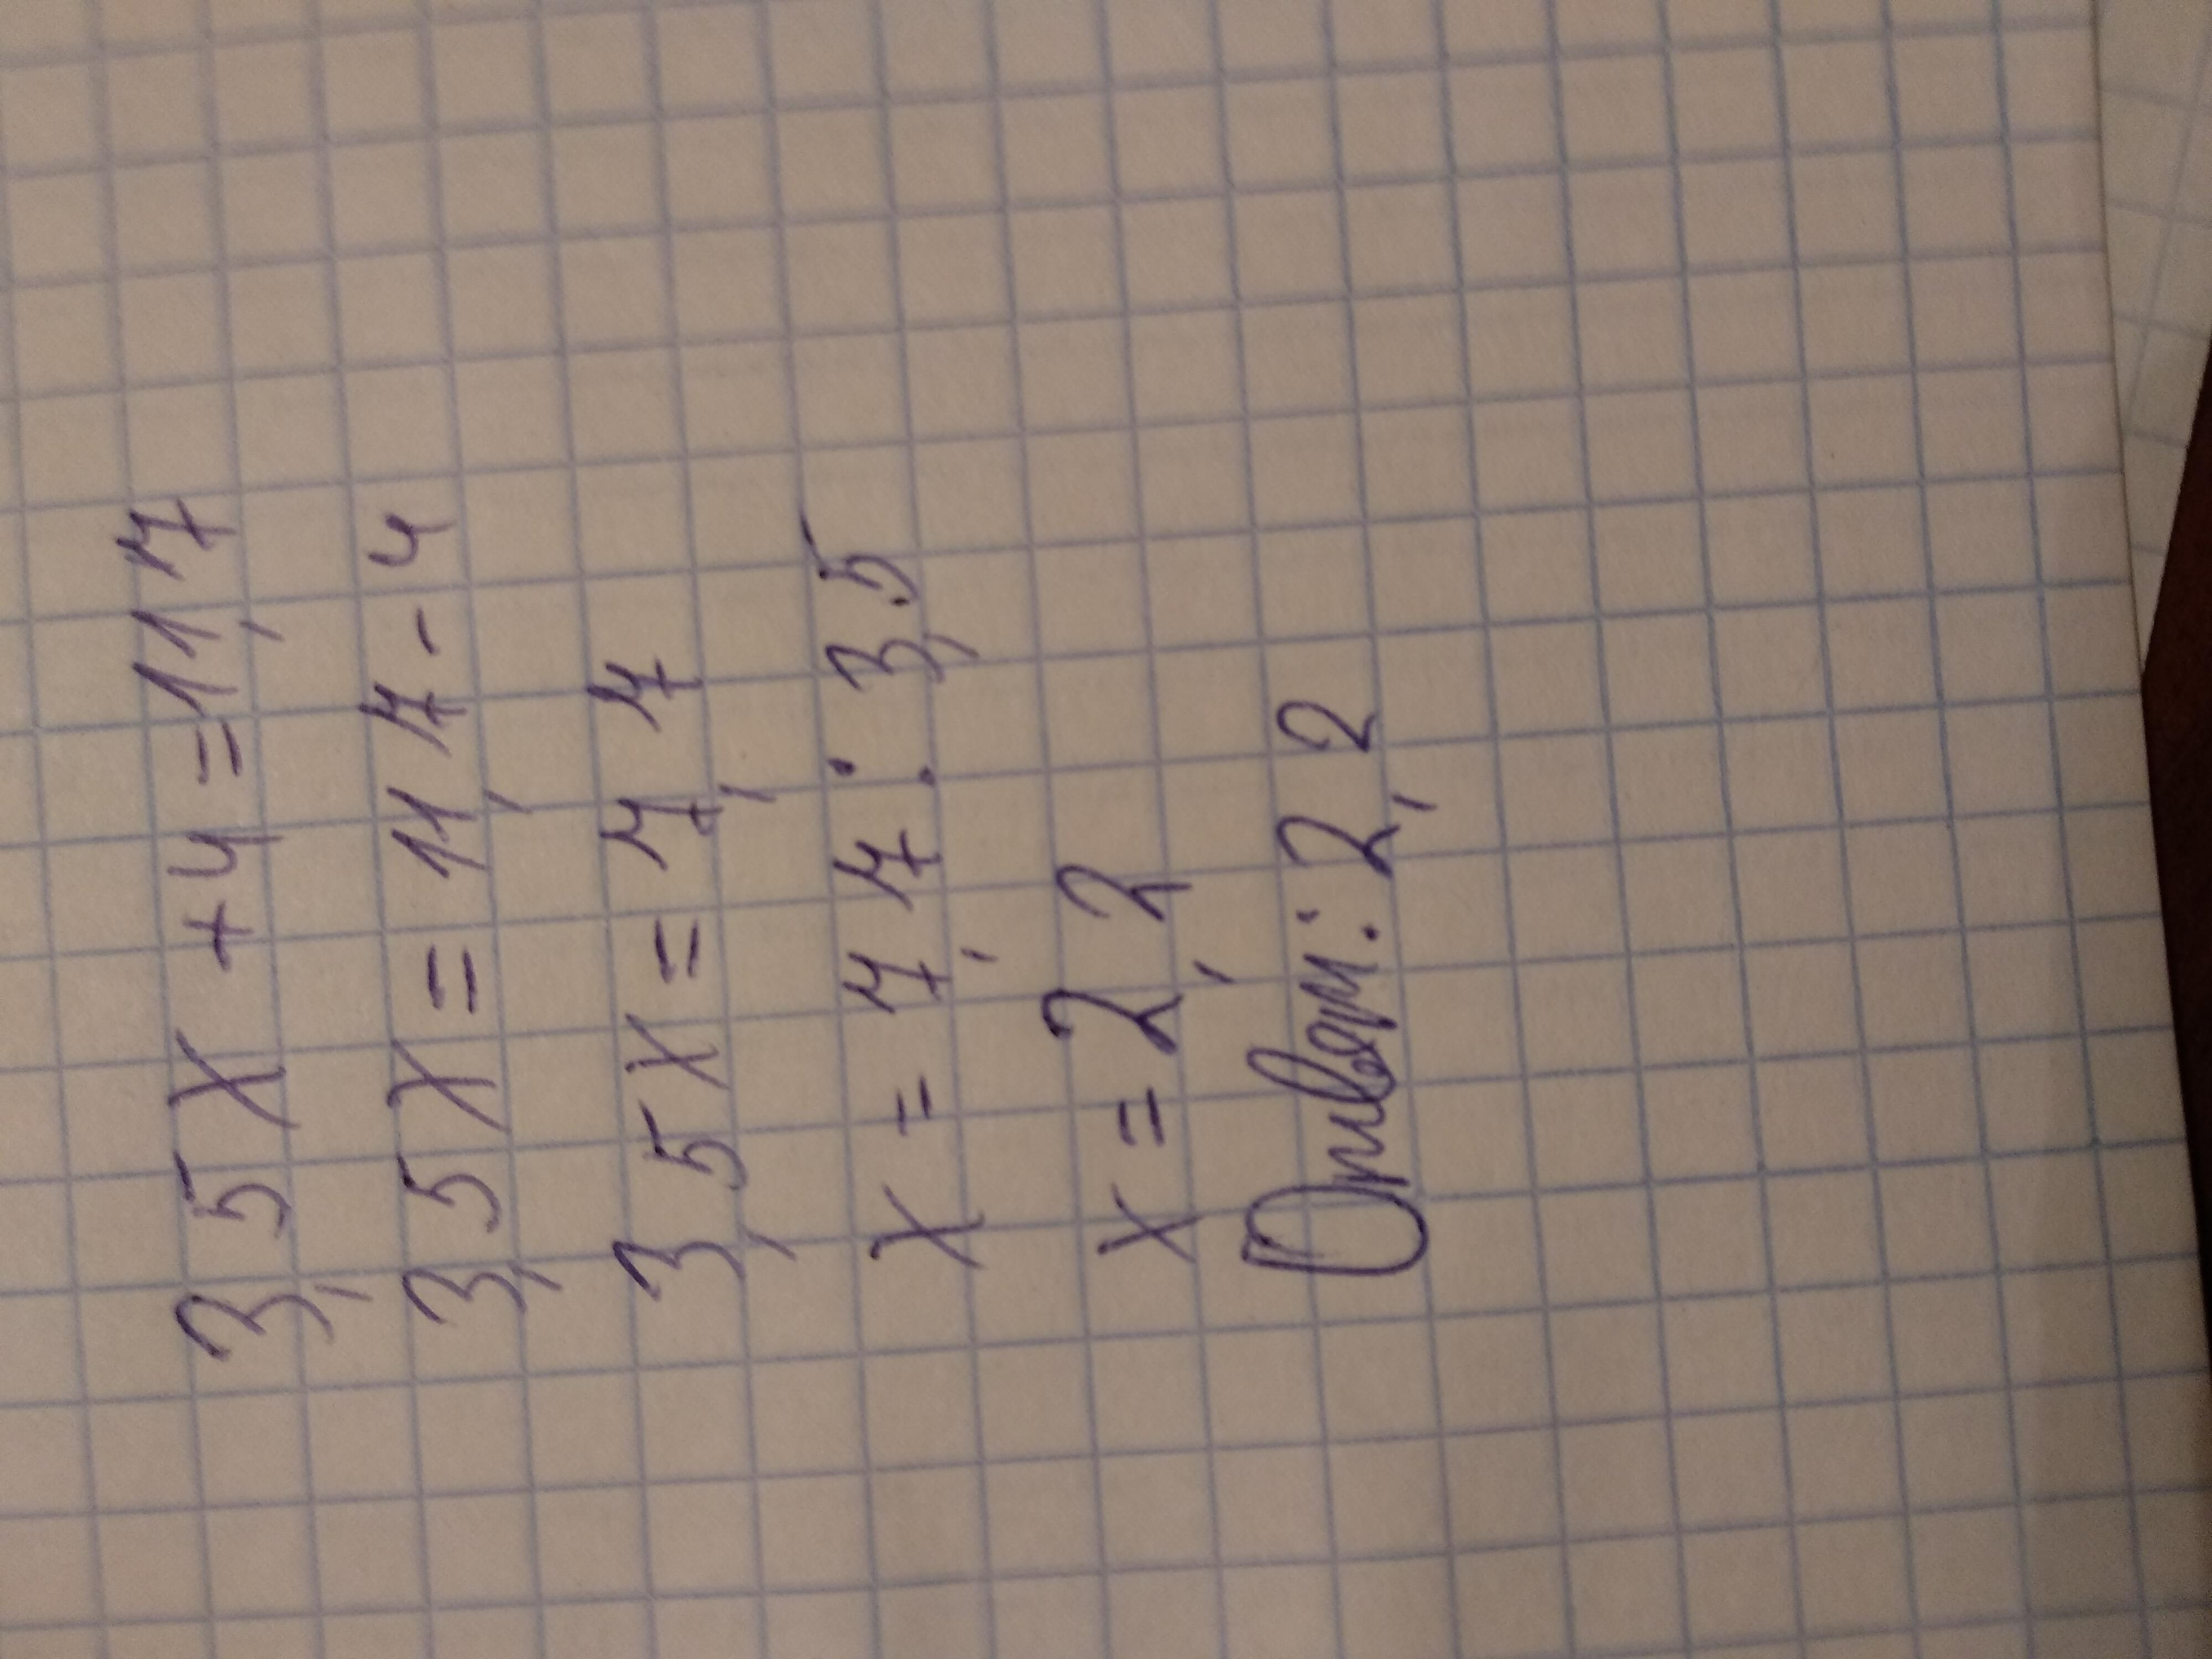 3,5x + 4 = 11,7
3,5x = 11,7 - 4
3,5x = 7,7
x = 7,7 : 3,5
x = 2,2
Ответ: 2,2